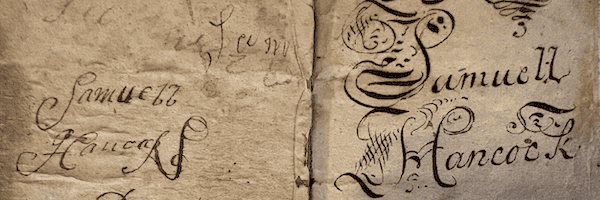 Samuell
Hancok
Samuell
Hancock